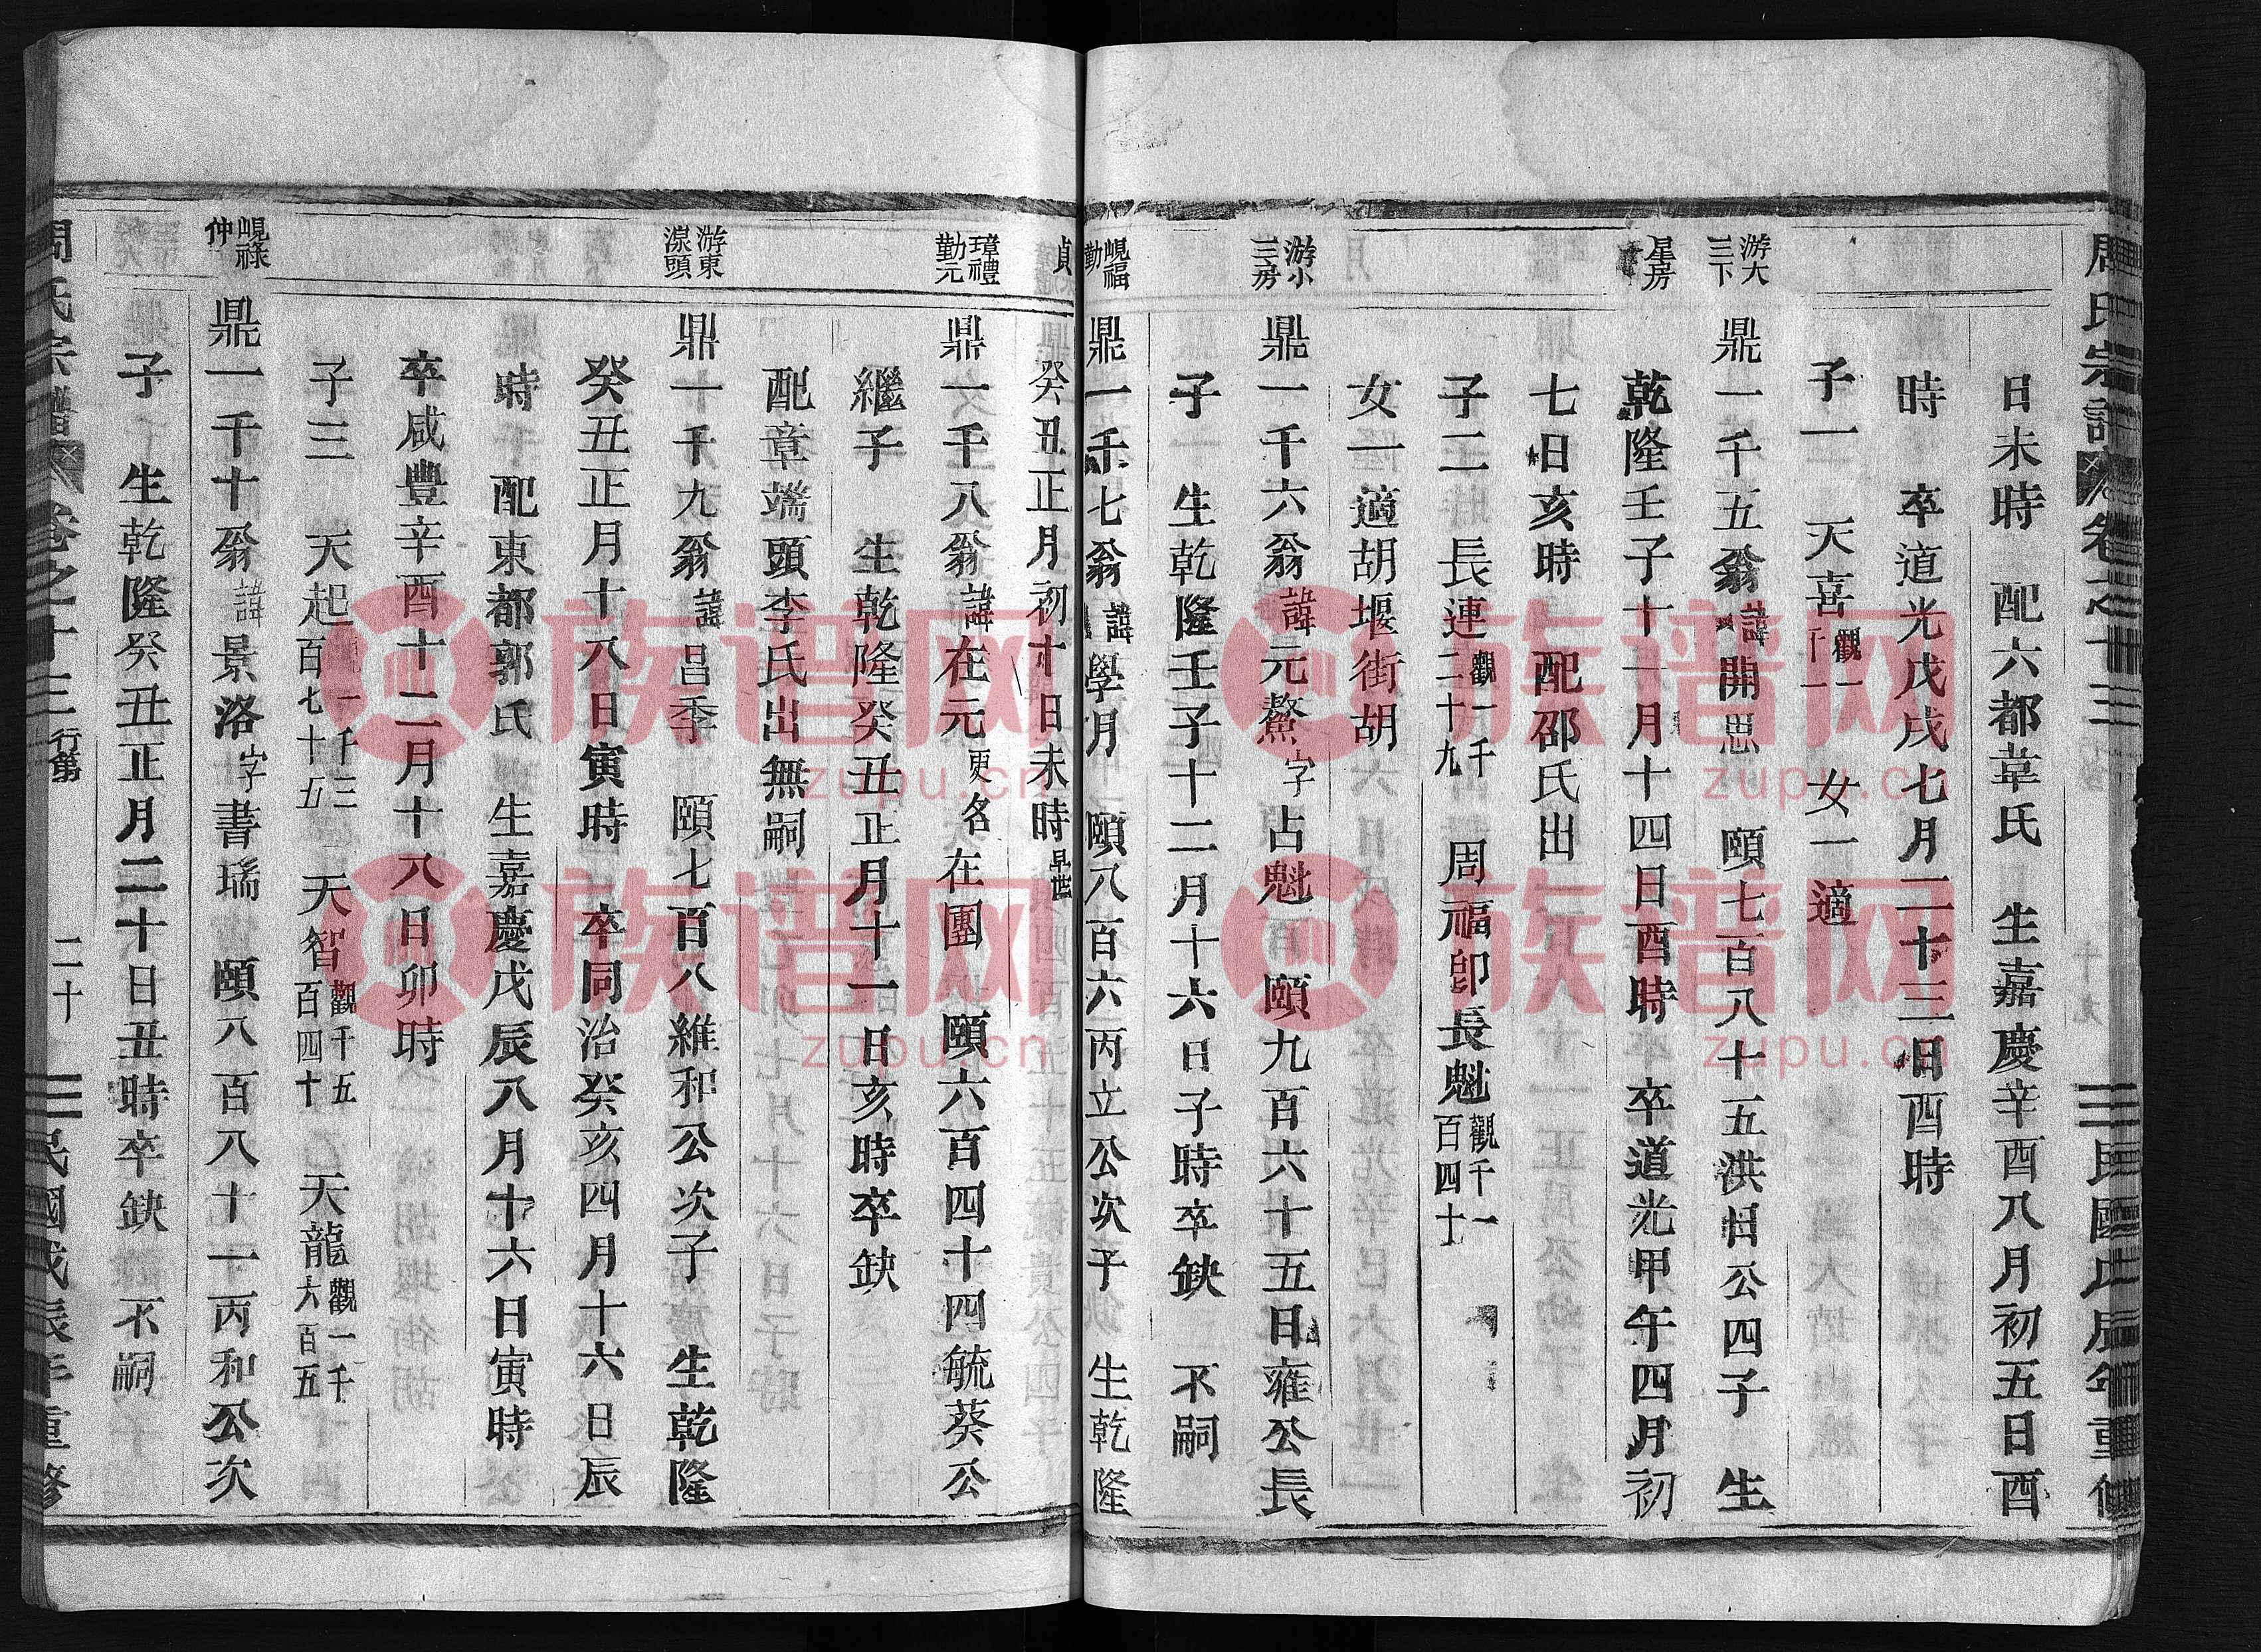 周氏宗譜 卷之十三 民國戊辰年重修
日未時 配六都韋氏 生嘉慶辛酉八月初五日酉
時 卒道光戊戌七月二十三日酉時
子一 天喜 觀一千一 女一適
游大三下
鼎一千五翁諱開思 頤七百八十五洪日公四子 生
星房
乾隆壬子十一月十四日酉時 卒道光甲午四月初
七日亥時 配邵氏出
子二 長連 觀一千二十九 周福卽長魁 觀千一百四十
女一適胡堰街胡
游小三房
鼎一千六翁諱元鰲字占魁 頤九百六十五日雍公長
子 生乾隆壬子十二月十六日子時卒缺 不嗣
峴福勤
鼎一千七翁諱學月 頤八百六丙立公次子 生乾隆
貞
癸丑正月初十日未時 早世
瑋禮勤元
鼎一千八翁諱在元更名在團 頤六百四十四毓葵公
繼子 生乾隆癸丑正月十一日亥時卒缺
配章端頭李氏出無嗣
游東湶頭
鼎十千九翁諱昌季 頤七百八維和公次子 生乾隆
癸丑正月十八日寅時 卒同治癸亥四月十六日辰
時 配東都郭氏 生嘉慶戊辰八月十六日寅時
卒咸豐辛酉十二月十八日卯時
子三 天起 觀一千三百七十五 天智 觀千五百四十 天龍 觀一千六百五
峴祿仲
鼎一千十翁諱景洛字書瑤 頤八百八十一丙和公次
子 生乾隆癸丑正月二十日丑時卒缺 不嗣
周氏宗譜 卷之十三 行第 二十 民國戊辰年重修
族谱网
zupu.cn
族谱网
zupu.cn
族谱网
zupu.cn
族谱网
zupu.cn